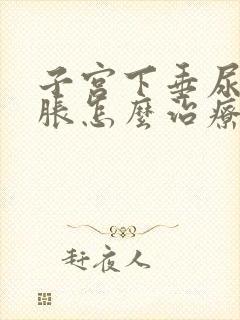 子宫下垂尿
胀怎麽治療
赶夜人